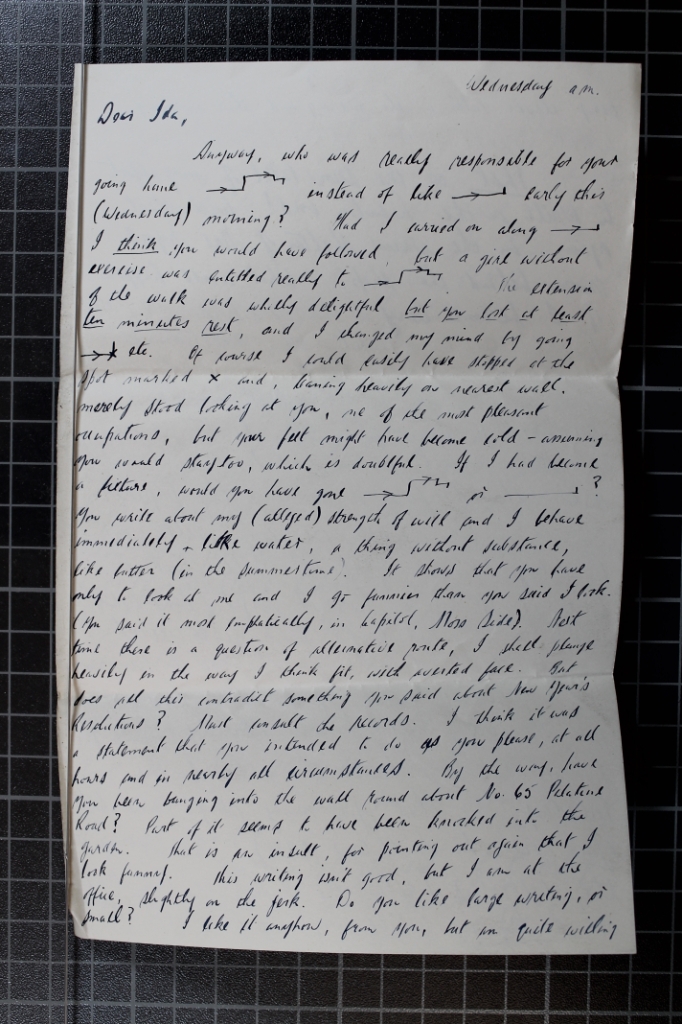 Wednesday a.m.
Dear Ida,
Anyway, who was really responsible for your
going home instead of like early this
(Wednesday) morning? Had I carried on along
I think you would have followed, but a girl without
exercise was entitled really to The extension
of the walk was wholly delightful but you lost at least
ten minutes rest, and I changed my mind by going
etc. Of course I could easily have stopped at the
spot marked x and, leaning heavily on nearest wall,
merely stood looking at you, one of the most pleasant
occupations, but your feet might have become cold - assuming
you would stay too, which is doubtful. If I had become
a fixture, would you have gone or ?
You write about my (alleged) strength of will and I behave
immediately like water, a thing without substance,
like butter (in the summertime). It shows that you have
only to look at me and I go funnier than you said I look.
(You said it most emphatically, in Capitol, Moss Side). Next
time there is a question of alternative route, I shall plunge
heavily in the way I think fit, with averted face. But
does all this contradict something you said about New Year's
Resolutions? Must consult the records. I think it was
a statement that you intended to do as you please, at all
hours and in nearly all circumstances. By the way, have
you been banging into the wall round about No. 65 Palatine
Road? Part of it seems to have been knocked into the
garden. That is an insult, for pointing out again that I
look funny. This writing isn't good, but I am at the
office, slightly on the jerk. Do you like large writing, or
small? I like it anyhow, from you, but am quite willing